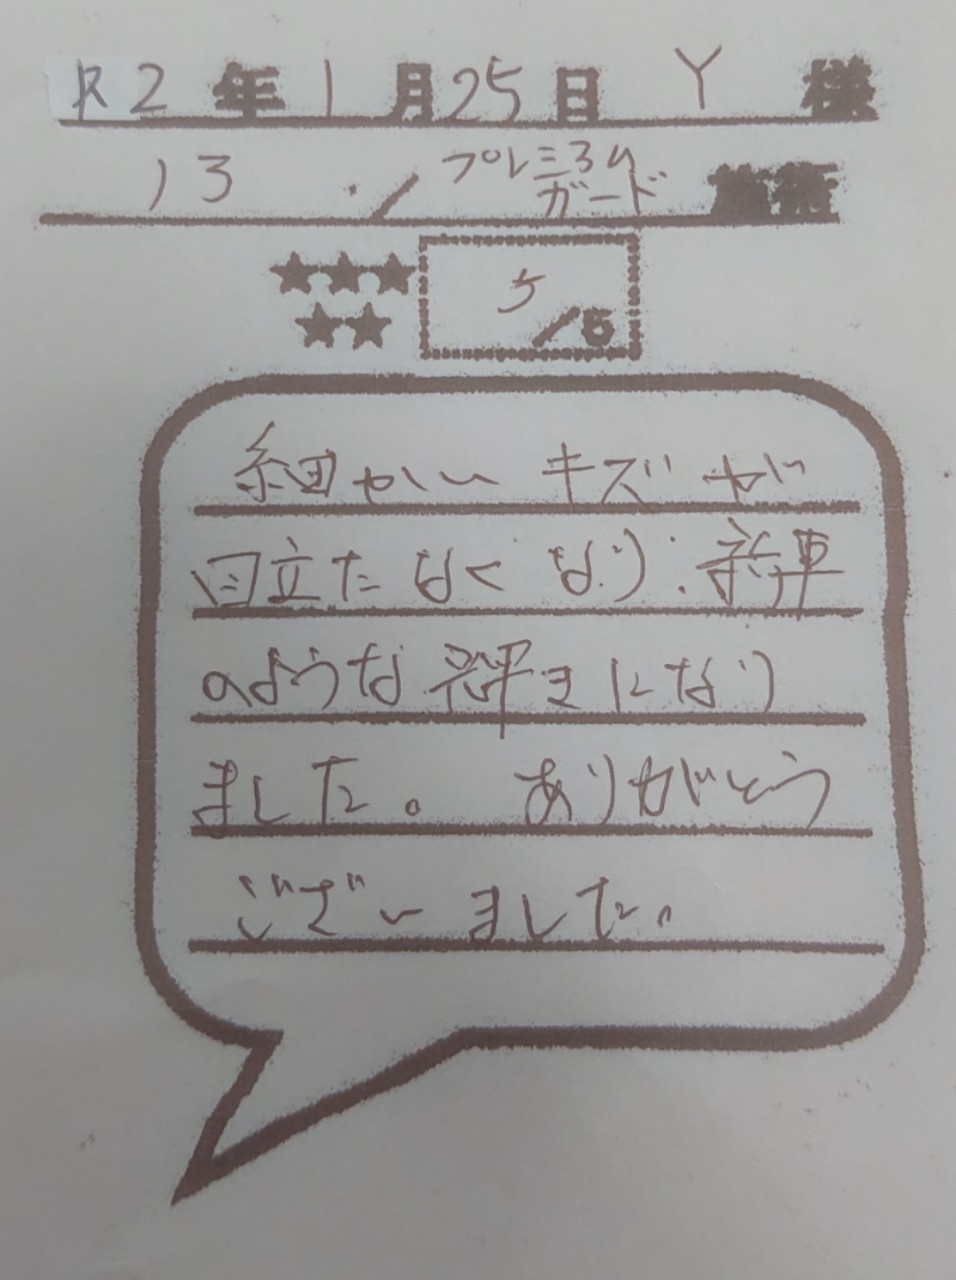 R2年1月25日 Y 様
13 ・/プレミアム
ガード 施術
★★★
★★
5/5
細かいキズが
目立たなくなり、新車
のような輝きになり
ました。ありがとう
ございました。